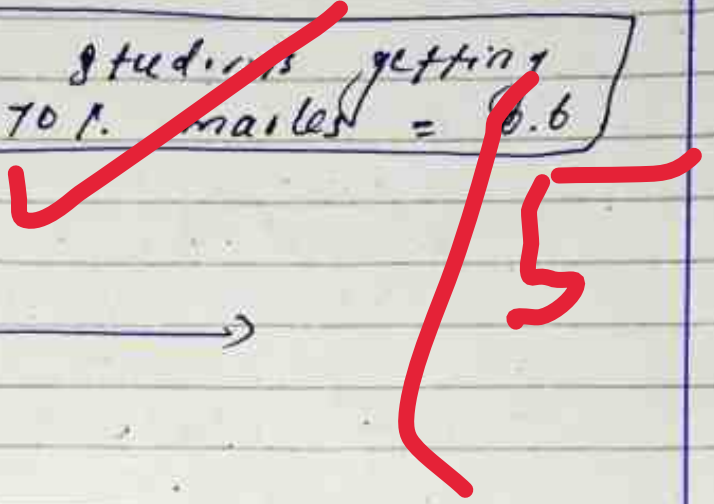 students getting
70 %. marks = 6.6
5